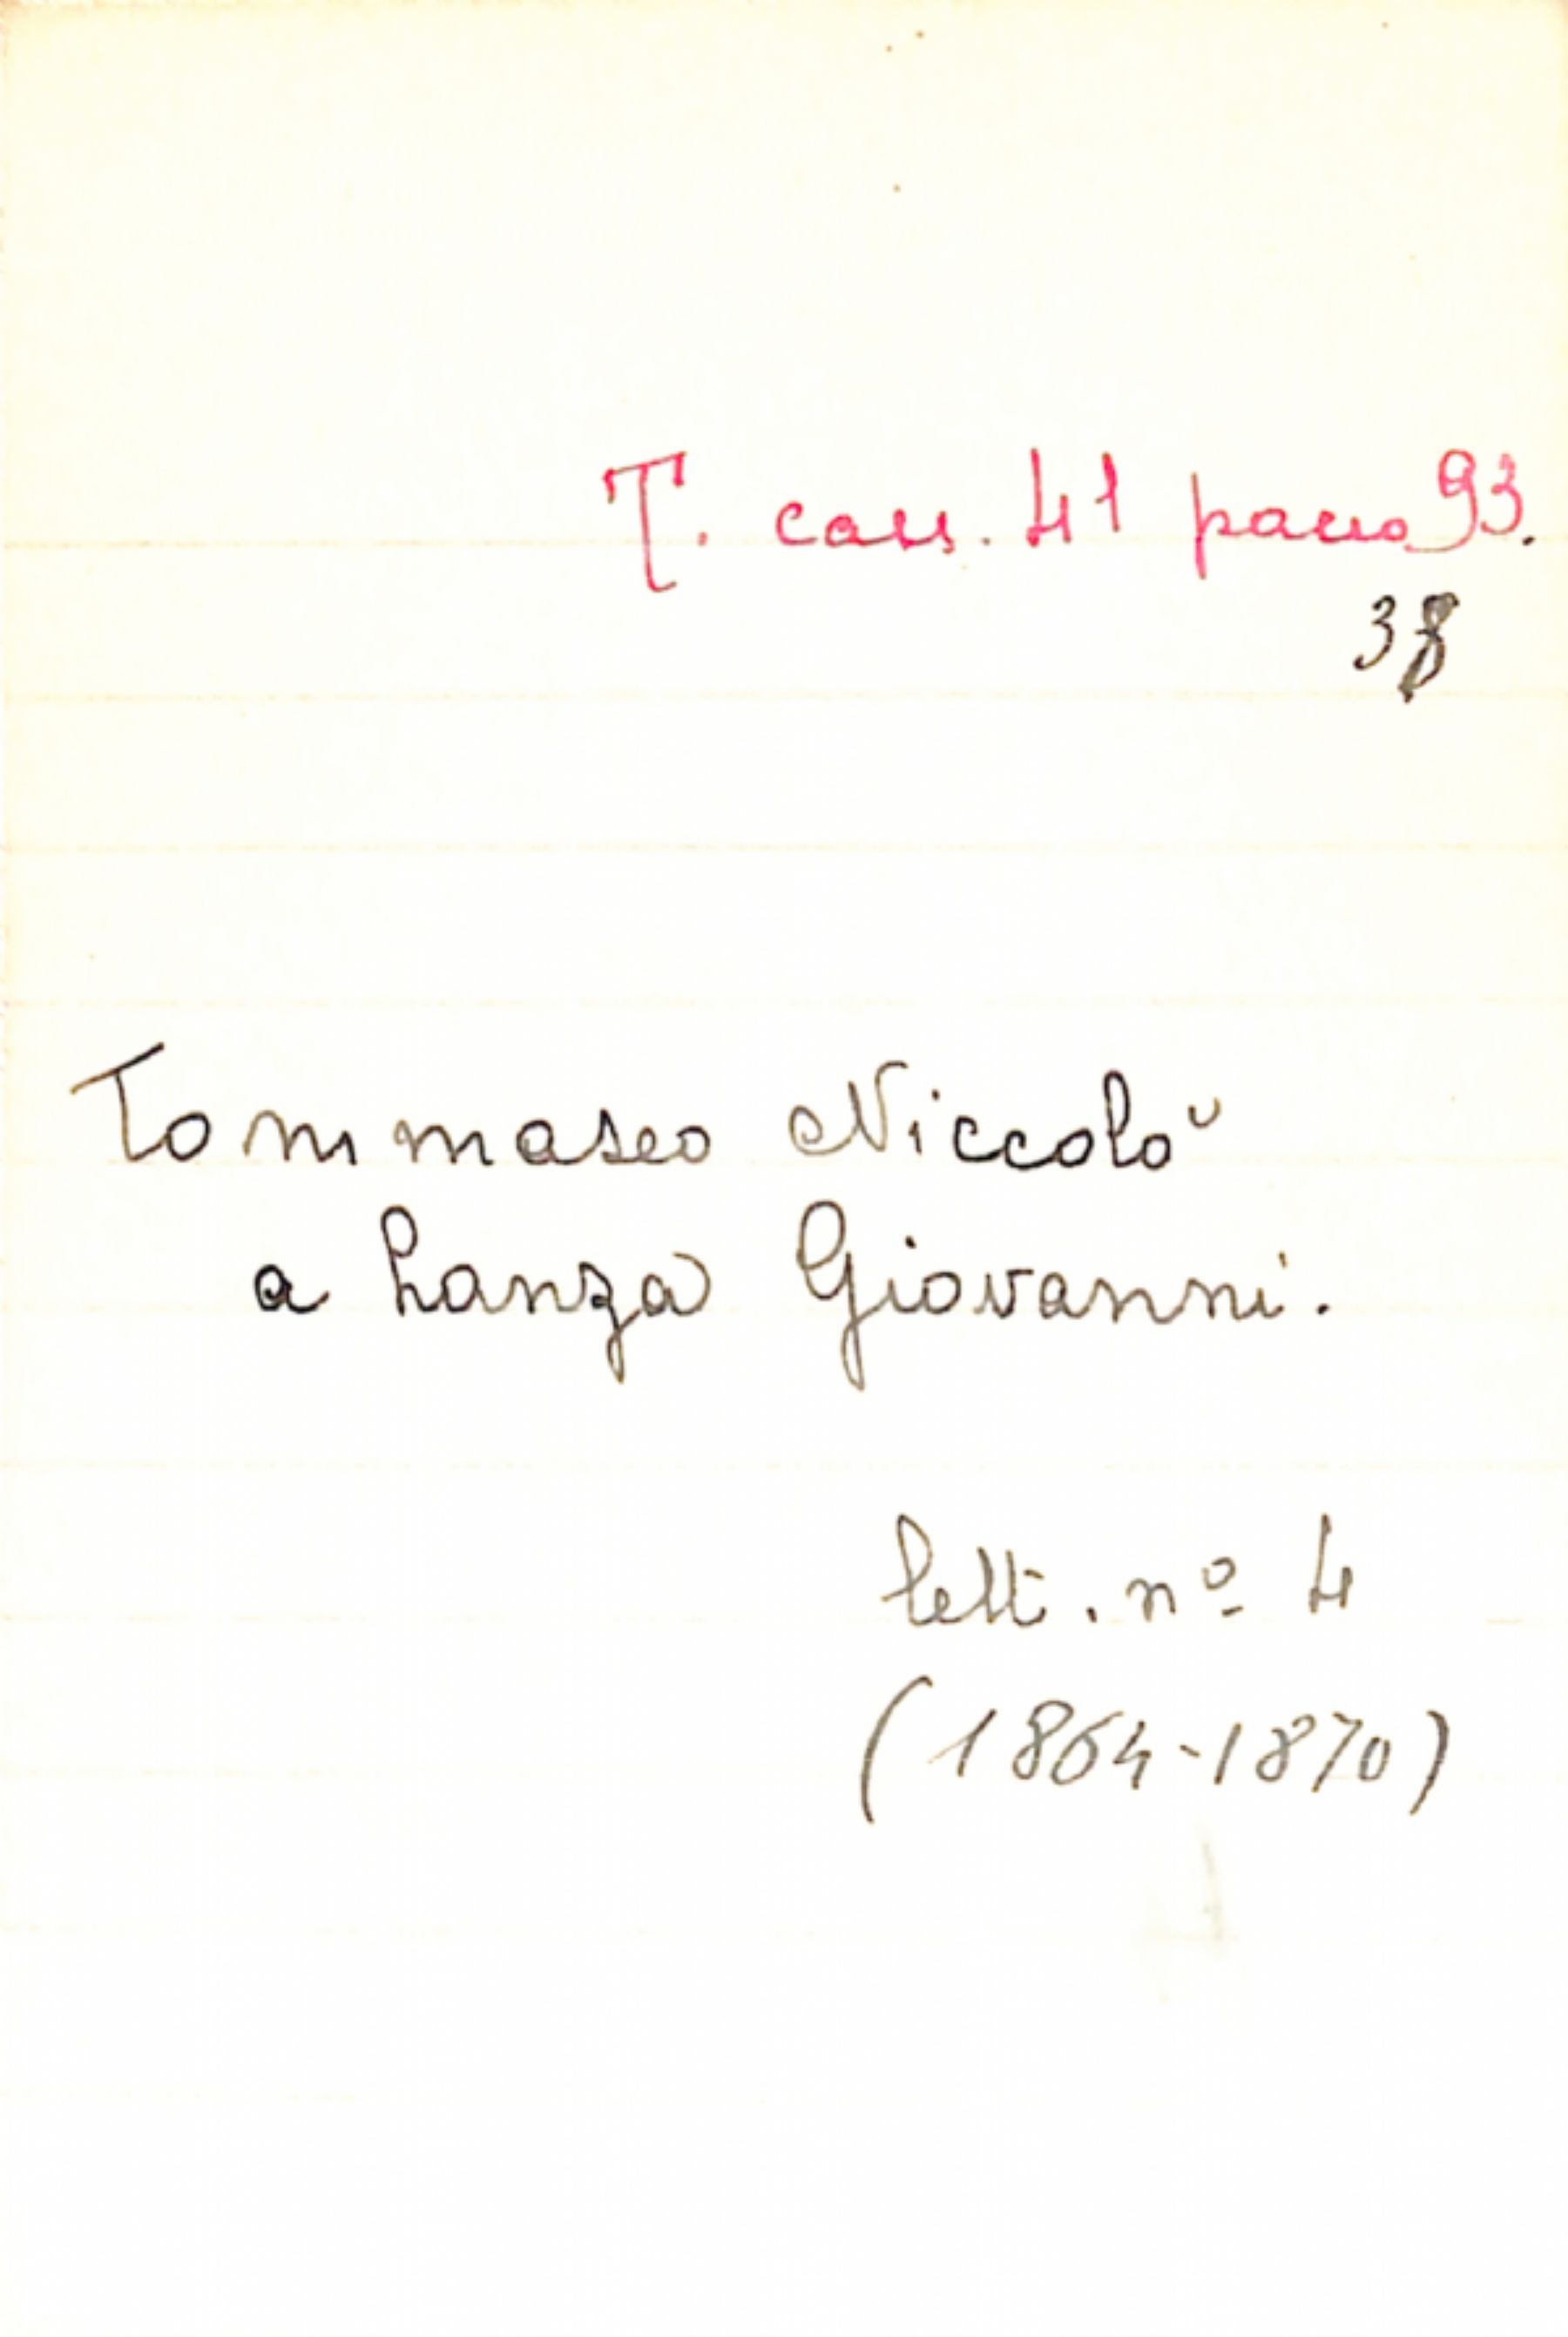 T. cass. 41 pacco 93.
38
Tommaseo Niccolò
a Lanza Giovanni.
lett. nº 4
(1864-1870)